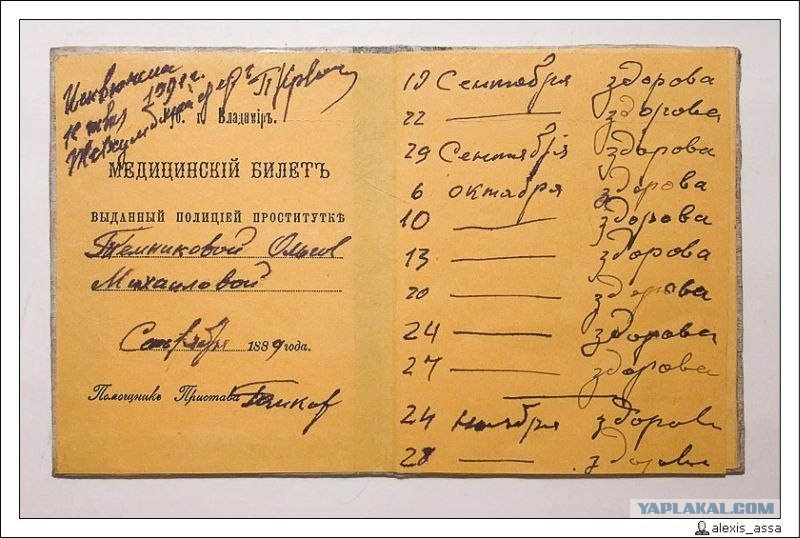 Губ. г. Владиміръ.
МЕДИЦИНСКІЙ БИЛЕТЪ
ВЫДАННЫЙ ПОЛИЦІЕЙ ПРОСТИТУТКѢ
Темниковой Ольге
Михайловой
Сентября 1889 года.
Помощникъ Пристава
18 Сентября здорова
22 — здорова
29 Сентября здорова
6 октября здорова
10 — здорова
13 — здорова
20 — здорова
24 — здорова
27 — здорова
24 ноября здорова
28 — здорова
YAPLAKAL.COM
alexis_assa